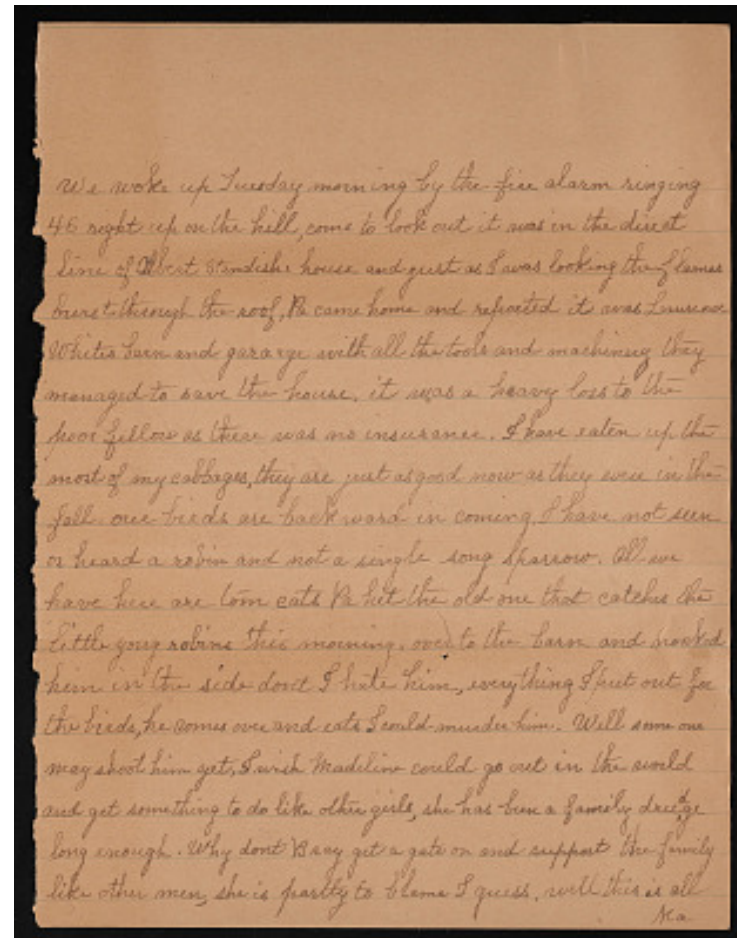 We woke up Tuesday morning by the fire alarm ringing
46 right up on the hill, come to look out it was in the direct
line of Albert Standish. house and just as I was looking the flames
burst through the roof, Pa came home and reported it was
Whites barn and gararge with all the tools and machinery they
managed to save the house. it was a heavy loss to the
poor fellow as there was no insurance. I have eaten up the
most of my cabbages, they are just as good now as they were in the
fall our birds are backward in coming, I have not seen
or heard a robin and not a single song sparrow. All we
have here are tom cats Pa het the old one that catches the
little yong robins this morning, over to the barn and
him in the side dont I hate him, everything I put out for
the birds, he comes over and eats I could murder him. Well some one
may shoot him yet, I wish Madeline could go out in the world
and get something to do like other girls, she has been a family drudge
long enough. Why dont get a gate on and support the family
like other men, she is partly to blame I guess. well this is all
Ma